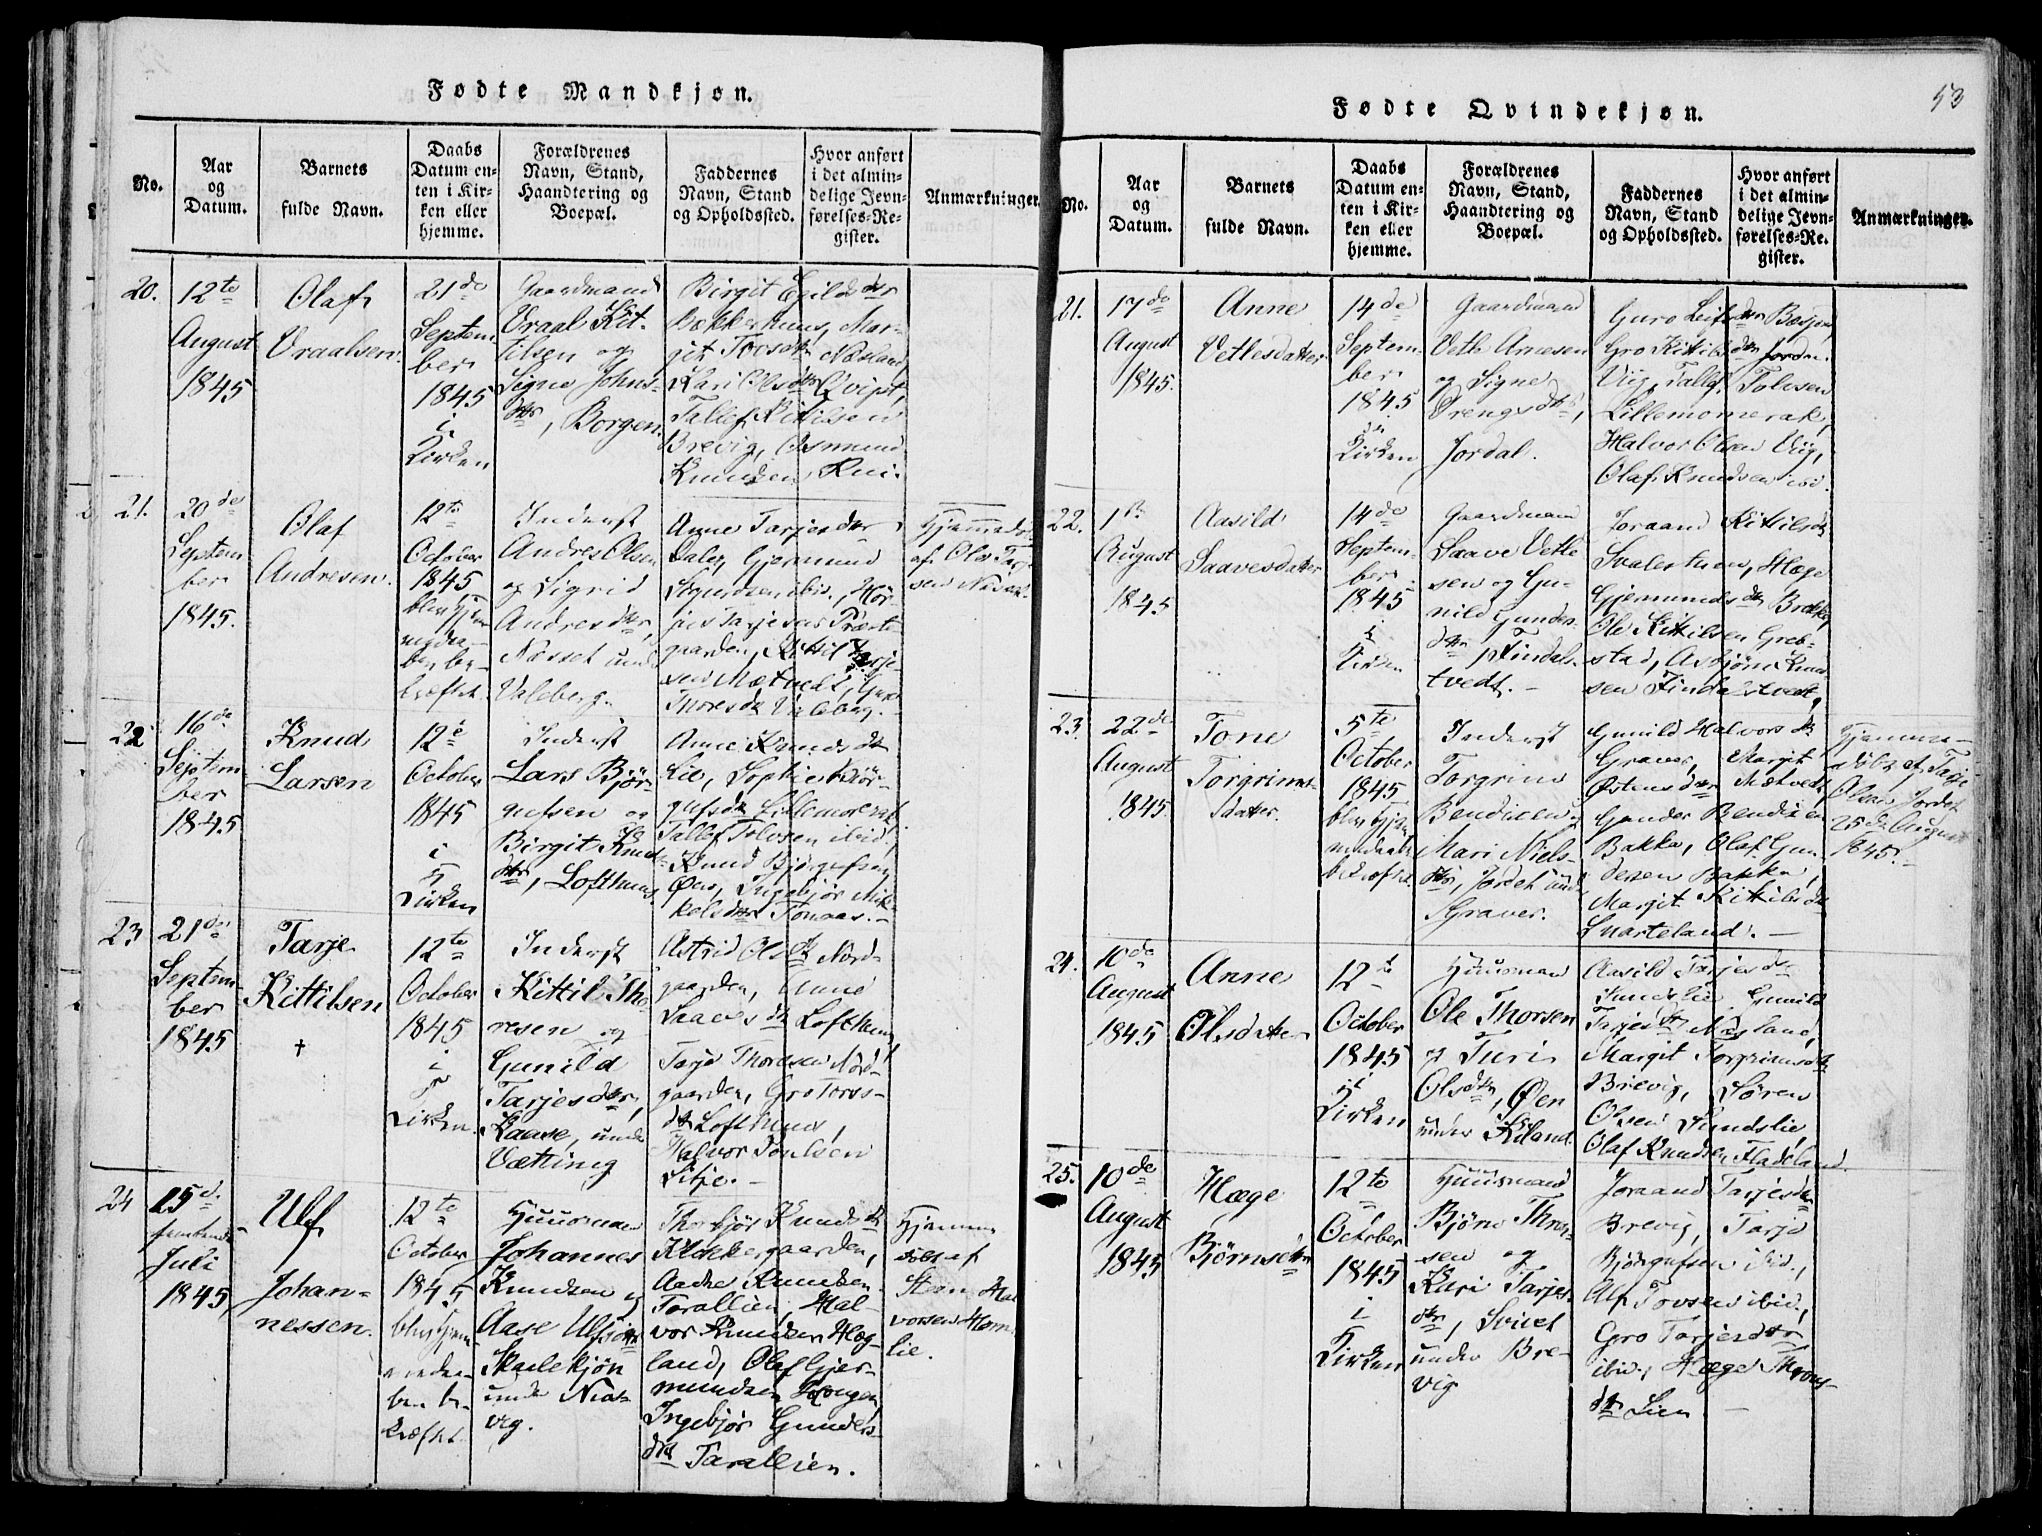 Fødte Mandkjøn.
No.
Aar
og
Datum.
Barnets
fulde Navn.
Daabs
Datum en-
ten i Kir-
ken eller
hjemme.
Forældrenes
Navn, Stand,
Haandtering og
Boepæl.
Faddernes
Navn, Stand
og Opholdssted.
Hvor anført
i det almin-
delige Jevn-
førelses-Re-
gister.
Anmærkninger.
20.
12te
August
1845
Olaf
Vraalsen.
21de
Septem
ber
1845
i
Kirken
Gaardmand
Vraal Kit-
tilsen og
Signe Johns-
dtr, Borgen.
Birgit Egilsdtr
Bækkerhuus, Mar-
git Torsdtr Næsland,
Kari Olsdtr Qvipt,
Tallef Kittilsen
Brevig, Osmund
Knudsen Rui.
21.
20de
Septem
ber
1845.
Olaf
Andresen.
12te
October
1845
blev hjem
medaa-
ben be-
kræftet.
Inderst
Andres Olsen
og Sigrid
Andresdtr,
Næsset und
Valeberg.
Anne Tarjesdtr
Dale, Gjermund
Sigurdsen ibid., Mar-
Tarjesdtr Præste
gaarden, Kittil Tarje-
sen Mætvedt,
Thoresdtr Valeberg.
Hjemmedøbt
af Ole Tar-
sen
22
16de
Septem
ber
1845
Knud
Larsen
12te
October
1845
i
Kirken
Inderst
Lars Bjør-
gufsen og
Birgit Knuds
dtr, Lofthuus
Anne Knudsdtr
Lie, Sophie Bjør-
gufsdtr Lillemoerak
Tallef Tolvsen ibid.
Knud Bjørgufsen
Øen, Ingebjør Mik-
kelsdtr Tonaas.
23
21de
Septem
ber
1845
Tarje
Kittilsen
†
12te
October
1845
i
Kirken.
Inderst
Kittil Tho
resen og
Gunild
Tarjesdtr,
Kaase, under
Vætting
Astrid Olsdtr Nord-
gaarden, Anne
Saavesdtr Lofthuus,
Tarje Thoresen Nord-
gaarden, Gro Torss-
dtr Lofthuus,
Halvor Poulsen
Sitje.
24
15de
femtende
Juli
1845
Ulf
Johan-
nessen.
12te
October
1845
blev hjem
medaa-
ben be-
kræftet
Huusmand
Johannes
Knudsen og
Aase Ulfsdtr
Skarlekjøn
under Næs-
vig.
Thorbjør Knudsdtr
Klokkergaarden,
Aadne Knudsen
Tarallien, Hal-
vor Knudsen Hæg-
land, Olaf Gjer-
mundsen Haugen
Ingebjør Gunders-
dtr Tarallien.
Hjemme
døbt af
Hal
vorsen Hem-
lie.
53
Fødte Qvindekjøn.
No.
Aar
og
Datum.
Barnets
fulde Navn.
Daabs
Datum en-
ten i Kir-
ken eller
hjemme.
Forældrenes
Navn, Stand,
Haandtering og
Boepæl.
Faddernes
Navn, Stand
og Opholdssted.
Hvor anført
i det almin-
delige Jevn-
førelses-Re-
gister.
Anmærkninger.
21.
17de
August
1845.
Anne
Vetlesdatter
14de
Septem-
ber
1845
i
Kirken
Gaardmand
Vetle Arnesen
og Signe
Drengsdtr,
Jordal.
Guro Leifsdtr
Gro Kittilsdtr
Viig, Tallef Tolvsen
Lillemomerak,
Halvor Olsen Viig,
Olaf Knudsen ibid.
22.
1ste
August
1845
Aasild
Saavesdatter
14de
Septem-
ber
1845
i
Kirken
Gaardmand
Saave Vetle
sen og Gu-
nild Gunders-
dtr, Findals-
tvedt.
Joraand Kittilsdtr
Svalestuen, Hæge
Gjermundsdtr Brekke,
Ole Kittilsen Greb-
stad, Asbjørn Knud
sen Findalstvedt,
23.
22de
August
1845.
Tone
Torgrims-
datter.
5te
October
1845
blev hjem
medaab
bekræftet.
Inderst
Torgrim
Bendixen og
Mari Niels-
dtr, Jordet und
Graver.
Gunild Halvorsdtr
Graver, Margit
Østensdtr Mætvedt,
Gunder Bendixen
Bakka, Olaf Gun
dersen Bakka,
Margit Kittilsdtr
Svarteland.
Hjemme-
døbt af Tarje
Olsen Jordet
25de August
1845.
24.
10de
August
1845
Anne
Olsdatter
12te
October
1845
i
Kirken
Huusmand
Ole Thorsen
og Turi
Olsdtr, Øen
under Kiland.
Aasild Tarjesdtr
Sundslie, Gunild
Tarjesdtr Næsland,
Margit Torgrimsdtr
Brevig, Søren
Olsen Sundslie,
Olaf Knudsen Fladeland
25.
10de
August
1845
Hæge
Bjørnsdtr
12te
October
1845
i
Kirken
Huusmand
Bjørn Thor
sen og
Kari Tarjes-
dtr, Sviet
under Bre-
vig
Joraand Tarjesdtr
Brevig, Tarje
Bjørgufsen ibid.,
Alf Tovsen ibid.,
Gro Tarjesdtr
ibid., Hæge Thorss-
dtr Lien